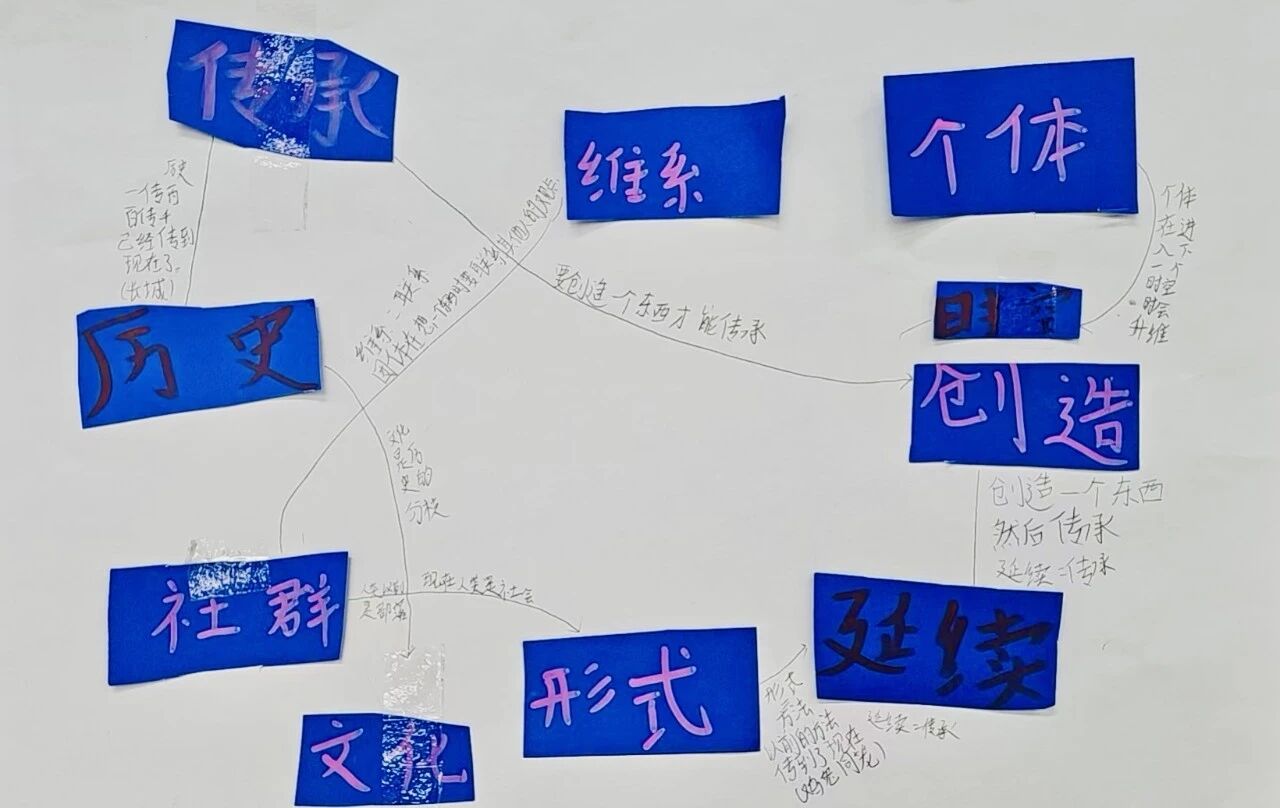 传承
维系
个体
历史
一传百
百传千
已经传到
现在了。
(长城)
个体
在进
入下
一个
时空
时会
升维
时空
历史
维系=联系
因个体在想一个东西时要联系其他人的观点
要创造一个东西才能传承
创造
文化
是历
史的
分枝
创造一个东西
然后传承
延续=传承
社群
是部落
现在人类是社会
形式
延续
形式
方法
以前的方法
传到了现在
延续=传承
文化